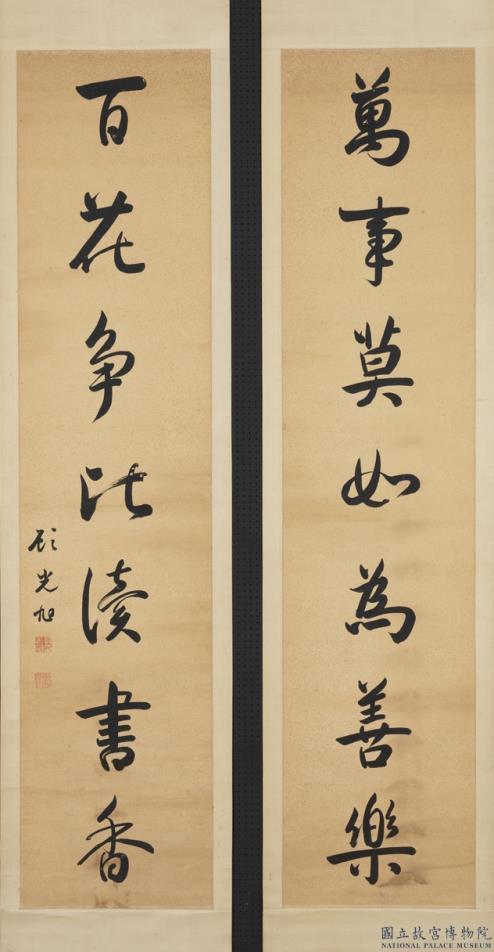 萬事莫如為善樂
百花争比讀書香
顧光旭
國立故宮博物院
NATIONAL PALACE MUSEUM